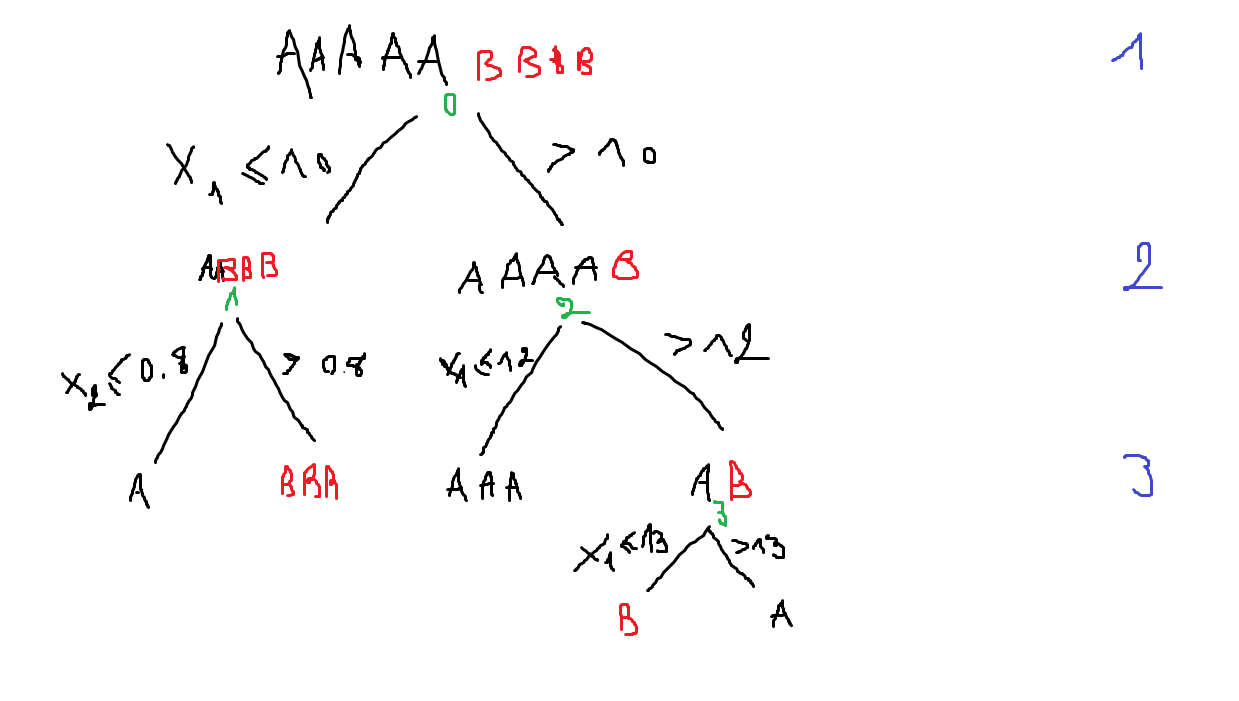 A A A A A B B B B 1
0
X1 ≤ 10 > 10
A B B B A A A A B 2
1 2
x2 ≤ 0.8 > 0.8 x1 ≤ 12 > 12
A B B B A A A A B 3
3
x1 ≤ 13 > 13
B A